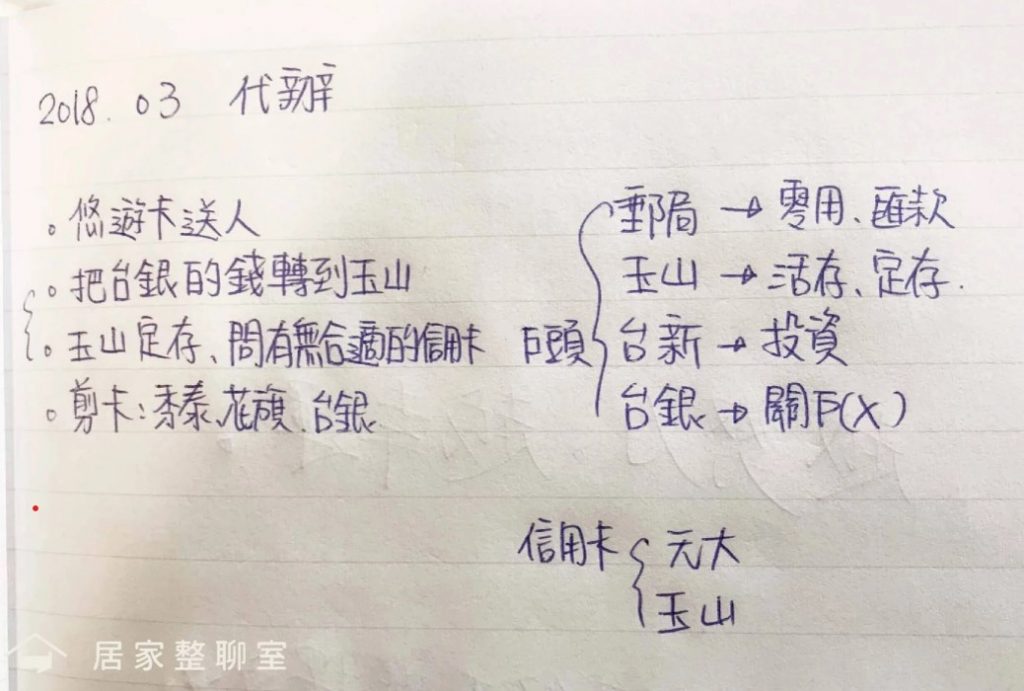 2018.03 代辦
。悠遊卡送人
。把台銀的錢轉到玉山
。玉山定存、問有無合適的信用卡
。剪卡:黍泰、花旗、台銀
戶頭
郵局 → 零用、匯款
玉山 → 活存、定存.
台新 → 投資
台銀 → 關戶(X)
信用卡
元大
玉山
居家整聊室